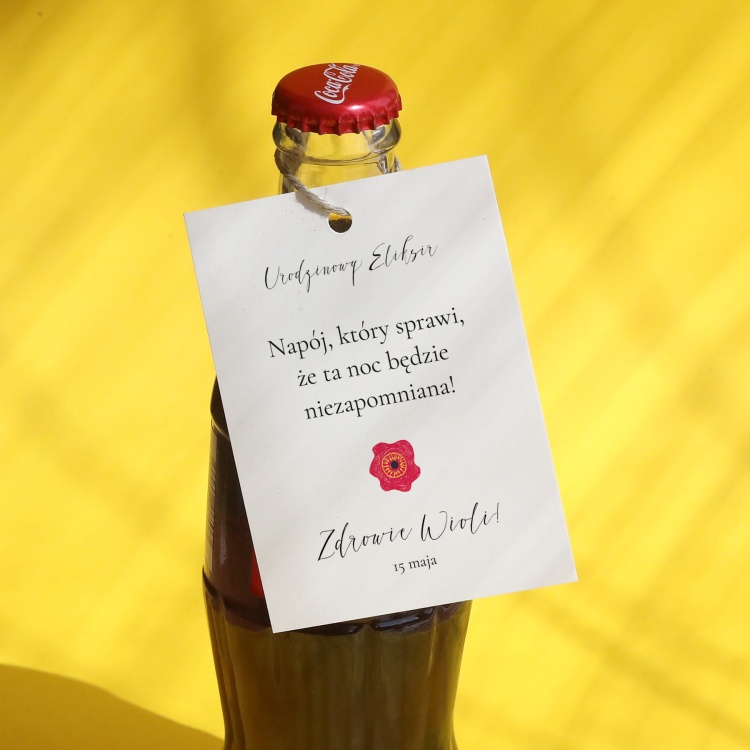 Coca-Cola
Urodzinowy Eliksir
Napój, który sprawi,
że ta noc będzie
niezapomniana!
Zdrowie Wioli!
15 maja